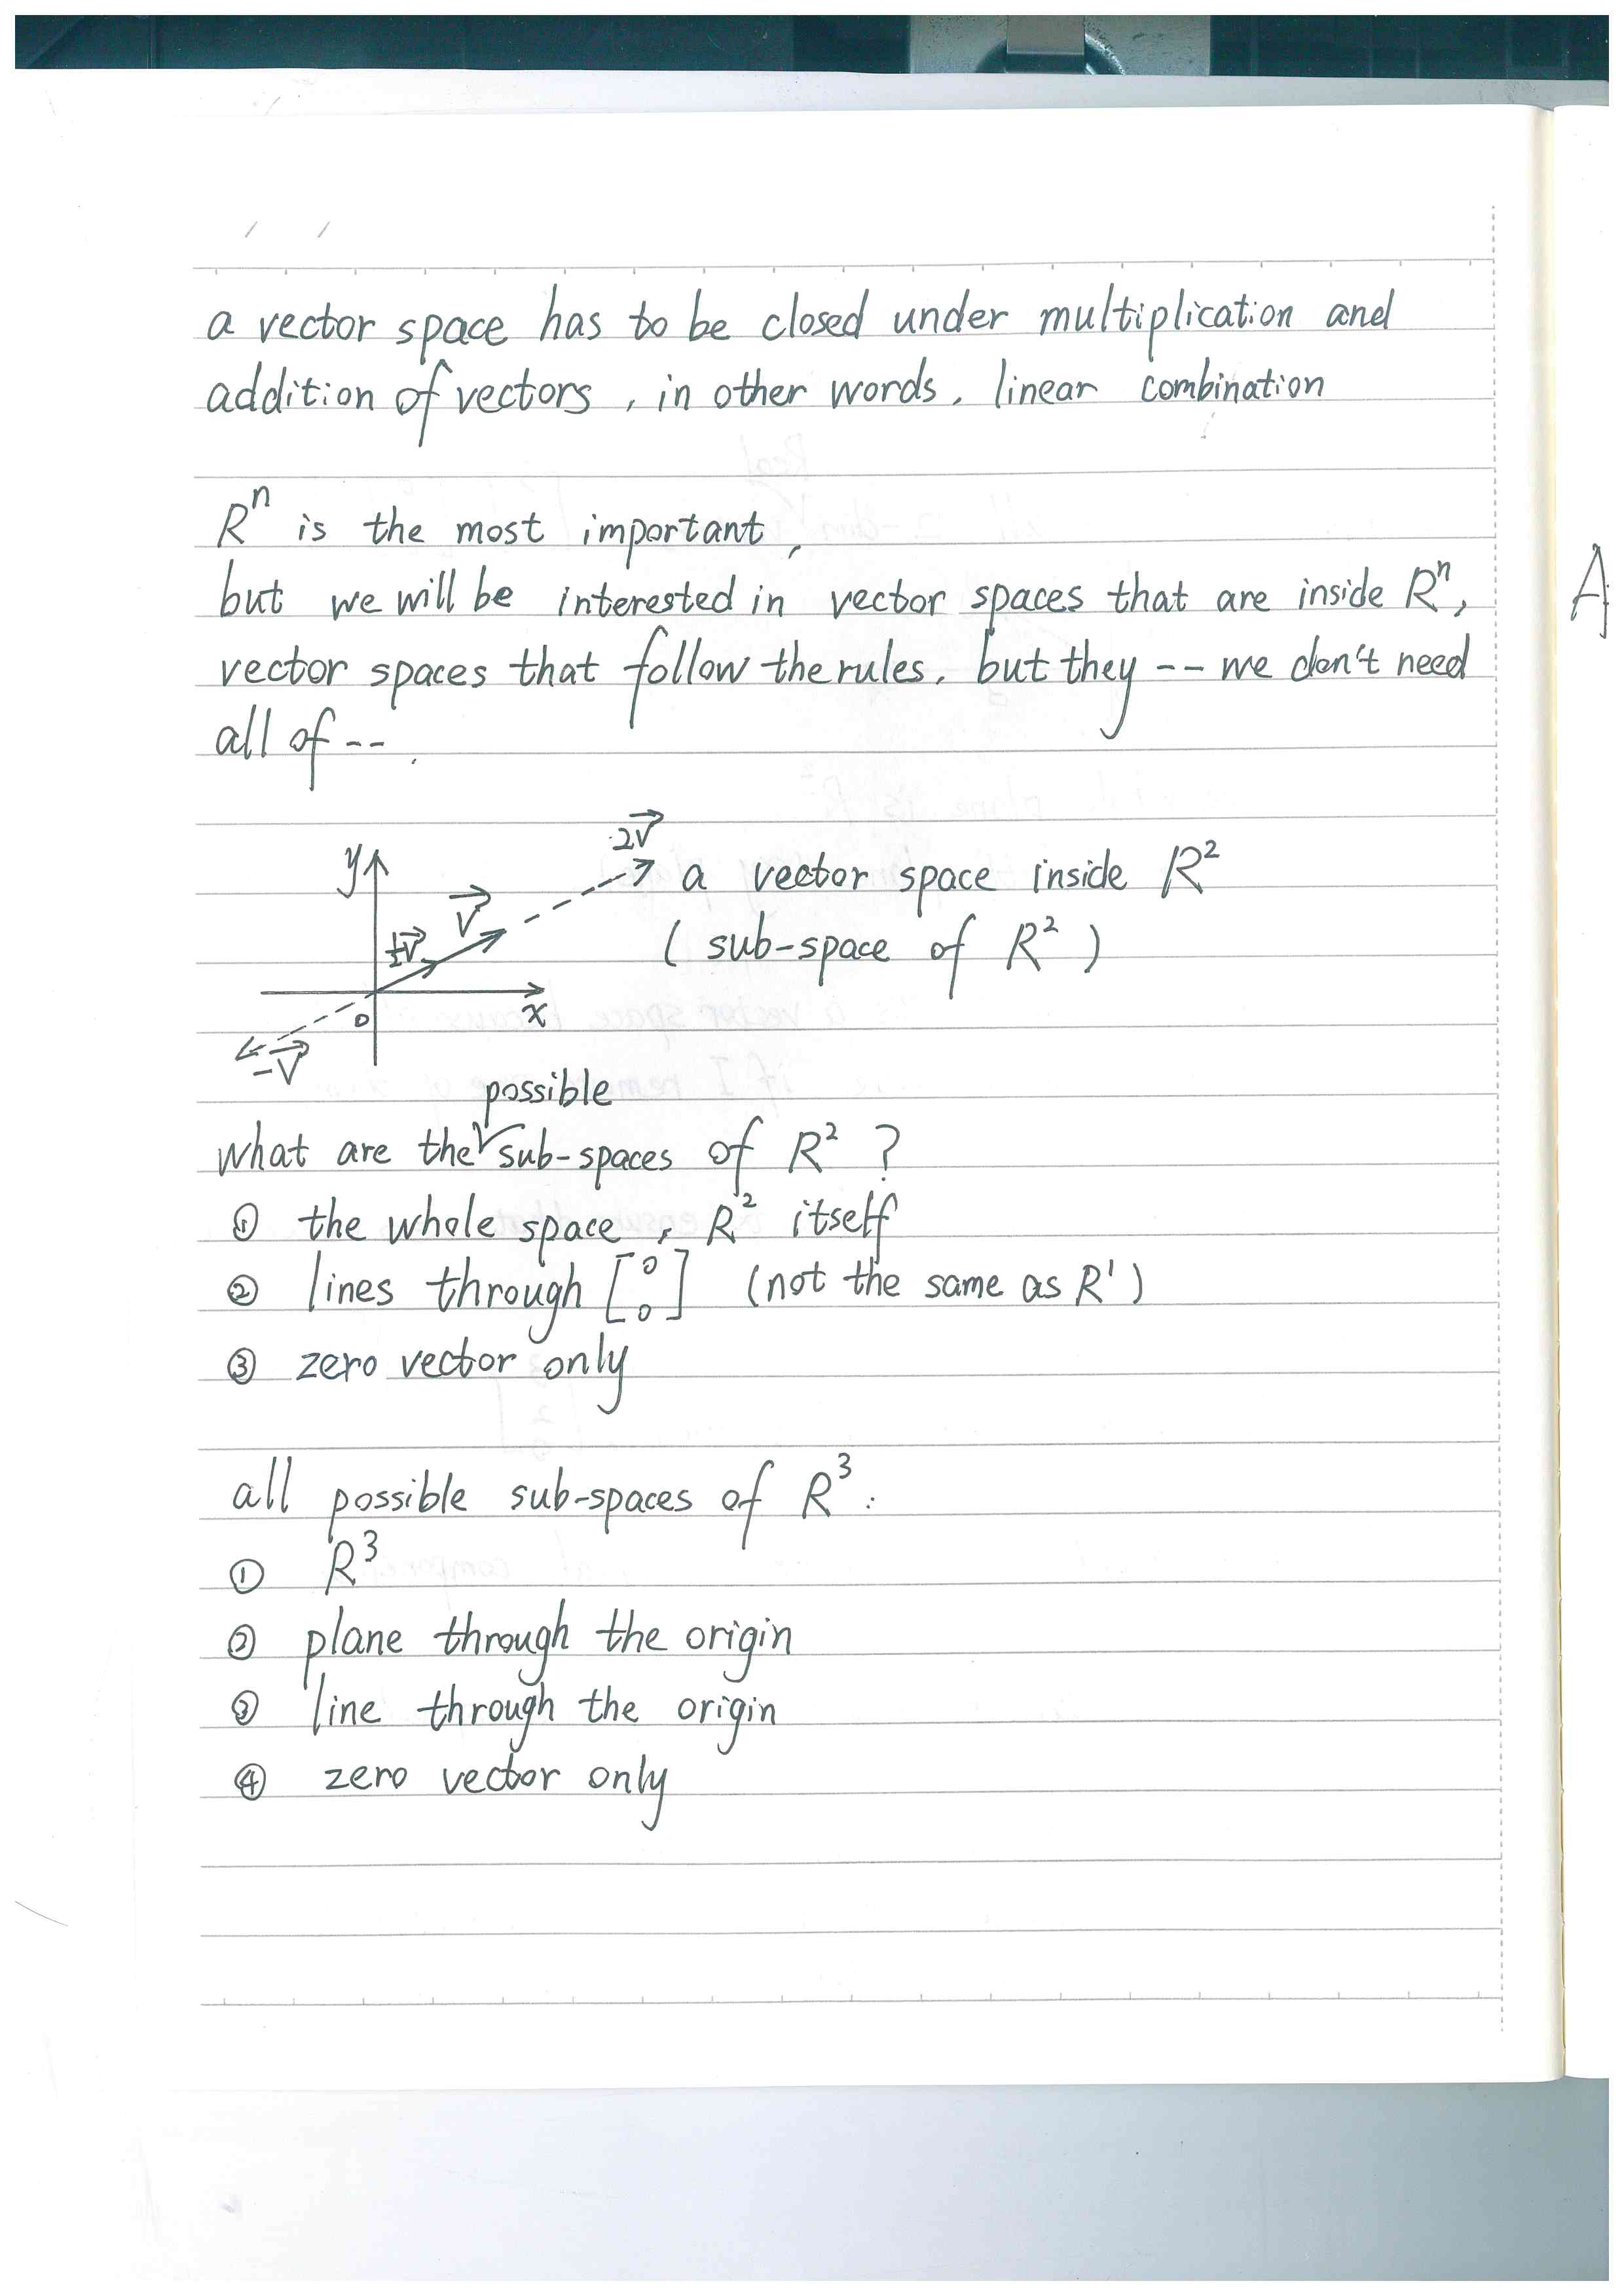 a vector space has to be closed under multiplication and
addition of vectors, in other words, linear combination
Rⁿ is the most important,
but we will be interested in vector spaces that are inside Rⁿ,
vector spaces that follow the rules, but they -- we don't need
all of --.
2v⃗
y
v⃗
a vector space inside R²
½v⃗
(sub-space of R²)
0
x
-v⃗
possible
what are the sub-spaces of R² ?
① the whole space, R² itself
② lines through [0 0] (not the same as R¹)
③ zero vector only
all possible sub-spaces of R³:
① R³
② plane through the origin
③ line through the origin
④ zero vector only
A